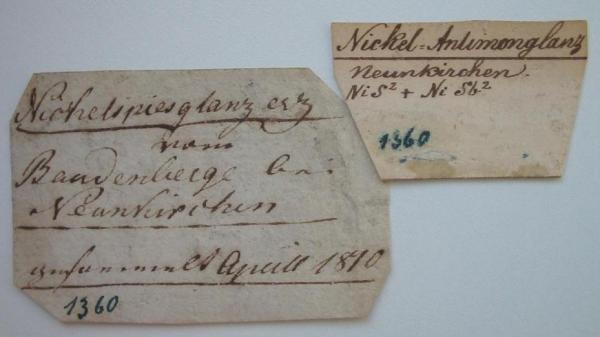 Nickelspiesglanz erz
vom
Baudenberge bei
Neunkirchen
gesammelt Aprill 1810
1360
Nickel=Antimonglanz
Neunkirchen.
NiS² + Ni Sb²
1360